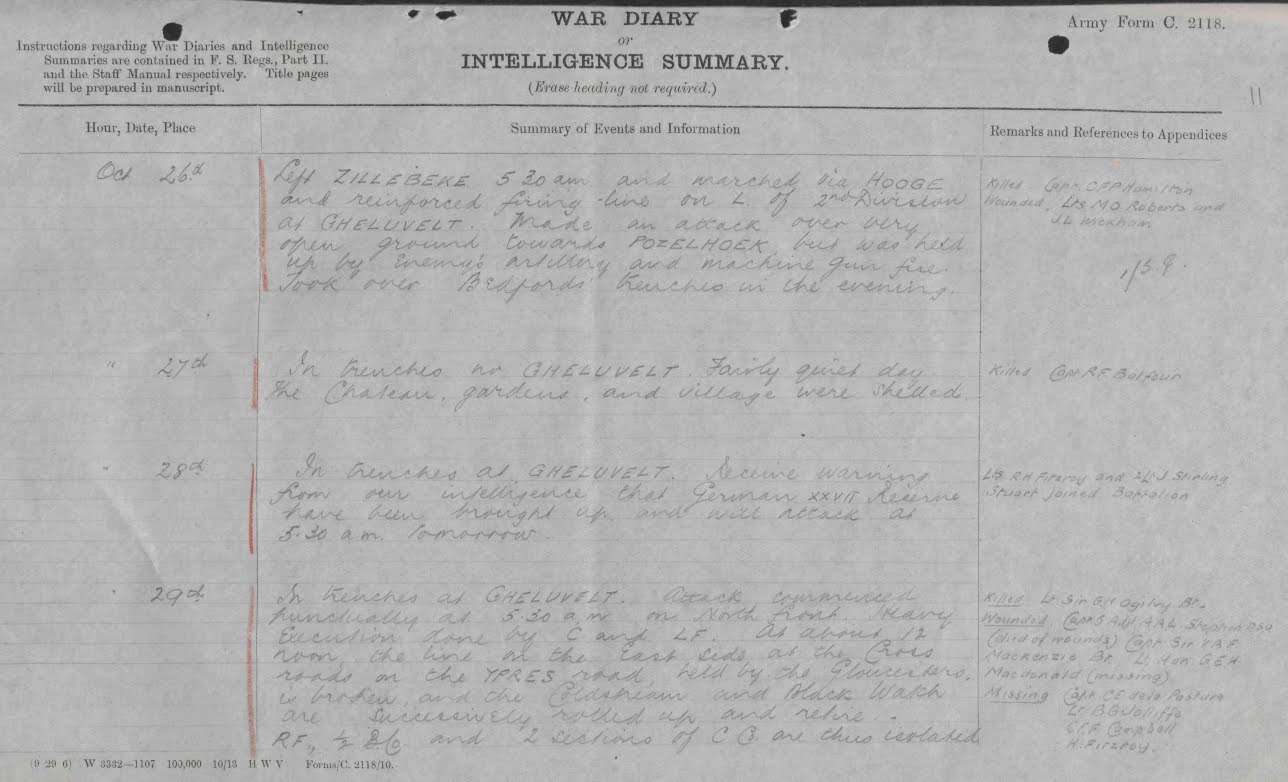 WAR DIARY
or
INTELLIGENCE SUMMARY.
(Erase heading not required.)
Army Form C. 2118.
Instructions regarding War Diaries and Intelligence
Summaries are contained in F. S. Regs., Part II.
and the Staff Manual respectively. Title pages
will be prepared in manuscript.
11
Hour, Date, Place
Summary of Events and Information
Remarks and References to Appendices
Oct 26th
Left ZILLEBEKE 5 30 am and marched via HOOGE
and reinforced firing-line on L. of 2nd Division
at GHELUVELT. Made an attack over very
open ground towards POZELHOEK, but was held
up by Enemy's artillery and machine gun fire.
Took over Bedfords' trenches in the evening.
Killed Capt. CFP Hamilton
Wounded. Lts M O Roberts and
J L Wickham
" 27th
In trenches nr GHELUVELT. Fairly quiet day
The Chateau, gardens, and village were shelled.
Killed Capt RF Balfour
" 28th
In trenches at GHELUVELT. Receive warning
from our intelligence that German XXVII Reserve
have been brought up, and will attack at
5.30 a.m. tomorrow.
Lts RH Fitzroy and J Stirling
Stuart joined Battalion
" 29th
In trenches at GHELUVELT. Attack commenced
punctually at 5.30 a.m. on North front. Heavy
execution done by C and LF. At about 12
noon the line on the East side at the Cross
roads on the YPRES road, held by the Gloucesters,
is broken, and the Coldstream and Black Watch
are successively rolled up and retire.
RF, ½ and 2 sections of C C are thus isolated
Killed Lt Sir G N Ogilvy Bt.
Wounded Capt & Adjt A.A.L. Stephen DSO
(died of wounds) Capt Sir V.A.F.
Mackenzie Bt. Lt Hon. G E H
Macdonald (missing)
Missing Capt CE de la Pasture
Lt B G Jolliffe
Campbell
H. Fitzroy.
(9 29 6) W 3332—1107 100,000 10/13 H W V Forms/C. 2118/10.